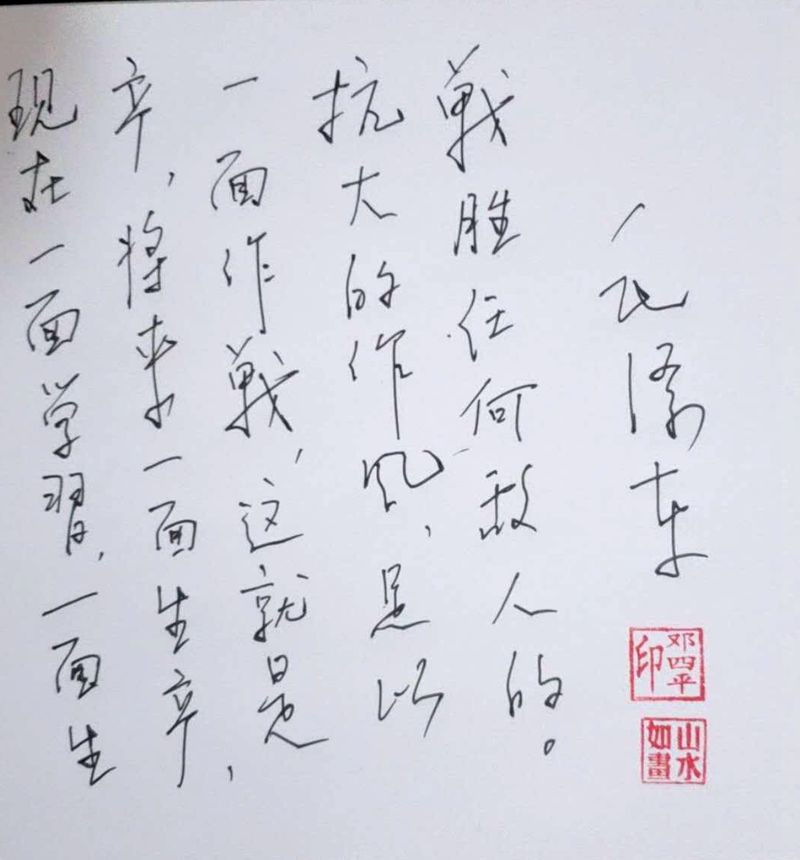 现在一面学習,一面生
产,将来一面生产,
一面作戰,这就是
抗大的作风,足以
戰胜任何敌人的。
毛泽东
邓四平印
山水如畫